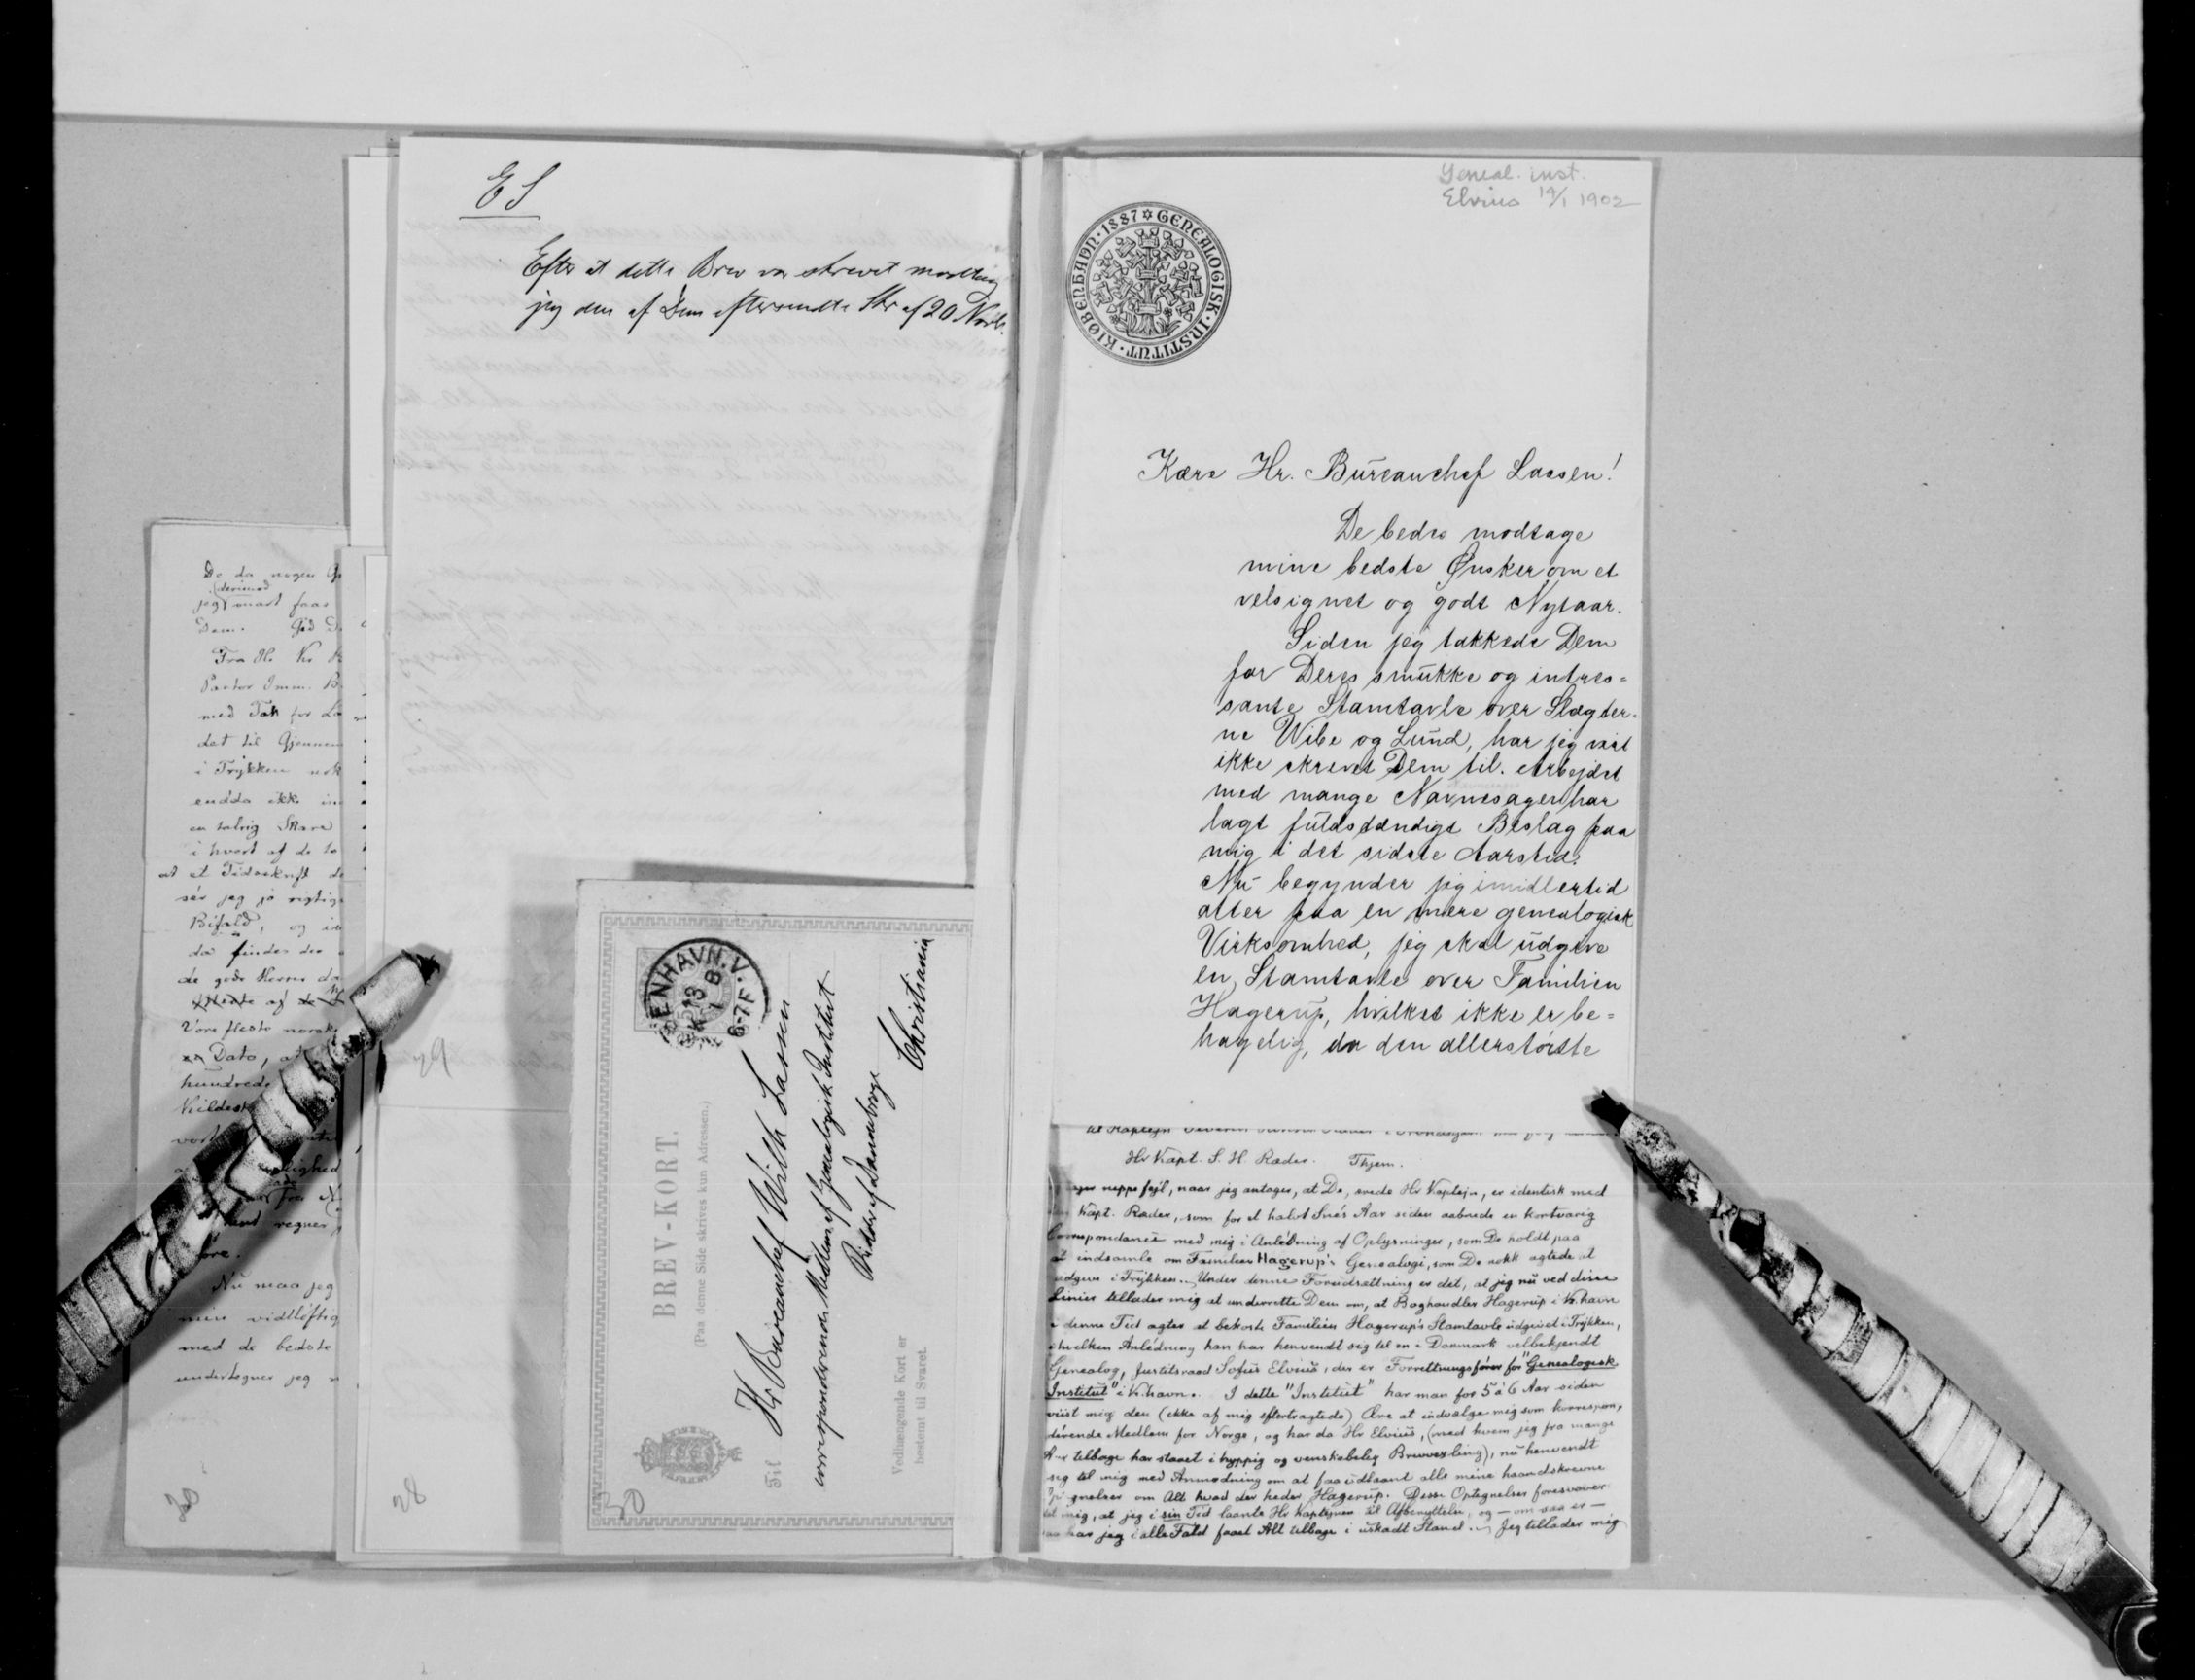 De da nogen
(derimod
jeg snart faae
Dem. Gid D.
Fra Hr Kr
Pastor Imm. B.
med Tak for Lå
det til Gjennem
i Trykken nok
endda ikke in
en talrig Skare
i hvert af de to
at et Tidsskrift de
sér jeg jo rigtig
Bifald, og
da findes der
de gode Herrer da
af de
Vore fleste norske
Dato, a
hundrede
Kildesk
regner
Nu maa jeg
min vidtløftig
med de bedste
undertegner jeg
30
ES
Efter at dette Brev var skrevet modtog
jeg den af Dem eftersendte Skr af 20 Novb.
29
28
KJØBENHAVN.V.
13
6-7F
BREV-KORT.
(Paa denne Side skrives kun Adressen.)
Til
Hr Bureauchef Wilh Lassen
correspondererende Medlem af Genealogisk Institut
Ridder af Dannebroge
Christiania
Vedhængende Kort er
bestemt til Svaret.
30
Geneal. inst.
Elvius 14/1 1902
KJØBENHAVN · 1887 ✡ GENEALOGISK · INSTITUT ·
Kære Hr. Bureauchef Lassen!
De bedes modtage
mine bedste Ønsker om et
velsignet og godt Nytaar.
Siden jeg takkede Dem
for Deres smukke og intres=
sante Stamtavle over Slægter-
ne Wibe og Lund, har jeg vist
ikke skrevet Dem til. Arbejdet
med mange Navnesager har
lagt fuldstændigt Beslag paa
mig i det sidste Aarstid.
Nu begynder jeg imidlertid
atter paa en mere genealogisk
Virksomhed, jeg skal udgive
en Stamtavle over Familien
Hagerup, hvilket ikke er be=
hagelig, da den allerstørste
Hr Kapt. S. H. Rader. Thjem.
neppe fejl, naar jeg antager, at De, ærede Hr Kaptejn, er identisk med
Kapt. Rader, som for et halvt Snés Aar siden aabnede en kortvarig
Correspondance med mig i Anlédning af Oplysninger, som De holdt paa
at indsamle om Familien Hagerup's Genealogi, som De nokk agtede at
udgive i Trykken. Under denne Forudsættning er det, at jeg nu ved disse
Linier tillader mig at underrette Dem om, at Boghandler Hagerup i K.havn
i denne Tid agter at bekoste Familien Hagerup's Stamtavle udgivet i Trykken,
i hvilken Anlédning han har henvendt sig til en i Danmark velbekjendt
Genealog, Justitsraad Sofus Elvius, der er Forrettningsfører for "Genealogisk
Institut" i K.havn. I dette "Institut" har man for 5 à 6 Aar siden
viist mig den (ikke af mig eftertragtede) Ære at indvælge mig som korrespon-
dérende Medlem for Norge, og har da Hr Elvius, (med hvem jeg fra mange
Aar tilbage har staaet i hyppig og venskabelig Brevvexling), nu henvendt
sig til mig med Anmodning om at faa udlaant alle mine haandskrevne
Optegnelser om Alt hvad der heder Hagerup. Disse Optegnelser foresvæver
det mig, at jeg i sin Tid laante Hr Kaptejnen til Afbenyttelse, og — om saa er —
saa har jeg i alle Fald faaet Alt tilbage i uskadt Stand. Jeg tillader mig